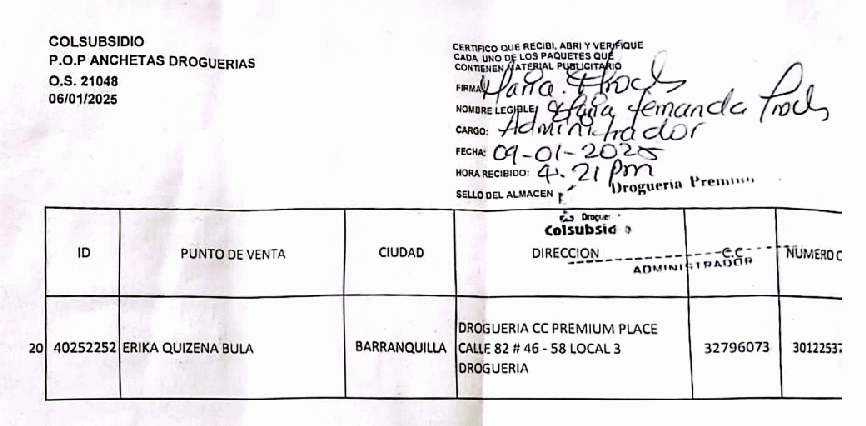 COLSUBSIDIO
P.O.P ANCHETAS DROGUERIAS
O.S. 21048
06/01/2025
CERTIFICO QUE RECIBI, ABRI Y VERIFIQUE
CADA UNO DE LOS PAQUETES QUE
CONTIENEN MATERIAL PUBLICITARIO
FIRMA: Maria
NOMBRE LEGIBLE: Maria Fernanda
CARGO: Administrador
FECHA: 09-01-2025
HORA RECIBIDO: 4:21 pm
SELLO DEL ALMACEN
Drogueria Premium
Colsubsidio
ADMINISTRADOR
ID PUNTO DE VENTA CIUDAD DIRECCION C.C NUMERO C
20 40252252 ERIKA QUIZENA BULA BARRANQUILLA DROGUERIA CC PREMIUM PLACE 32796073 30122537
CALLE 82 # 46 - 58 LOCAL 3
DROGUERIA